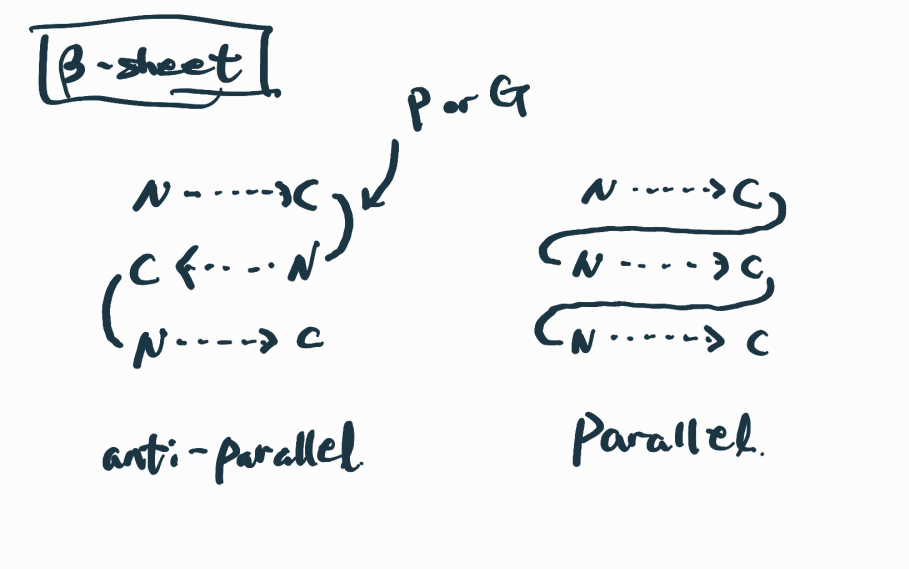 β-sheet
P or G
N ------> C
C <------ N
N ------> C
anti-parallel
N ------> C
N ------> C
N ------> C
Parallel.